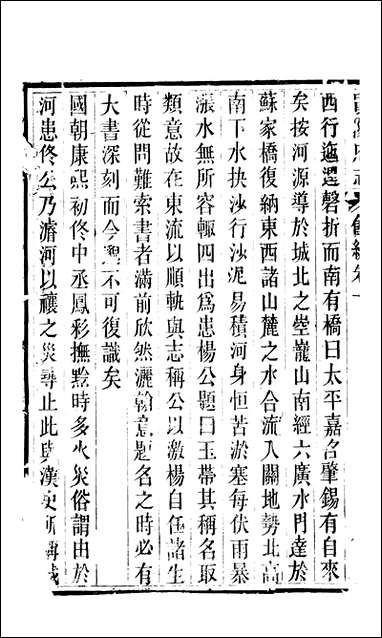 西行迤邐磬折而南有橋曰太平嘉名肇錫有自來
矣按河源導於城北之巃山南經六廣水門達於
蘇家橋復納東西諸山麓之水合流入關地勢北高
南下水抉沙行沙泥易積河身恒苦淤塞每伏雨暴
漲水無所容輒四出爲患楊公題曰玉帶其稱名取
類意故在東流以順軌與志稱公以激楊自任諸生
時從問難索書者滿前欣然灑翰意題名之時必有
大書深刻而今不可復識矣
國朝康熙初佟中丞鳳彩撫黔時多火災俗謂由於
河患佟公乃濬河以禳之災尋止此與漢史所稱